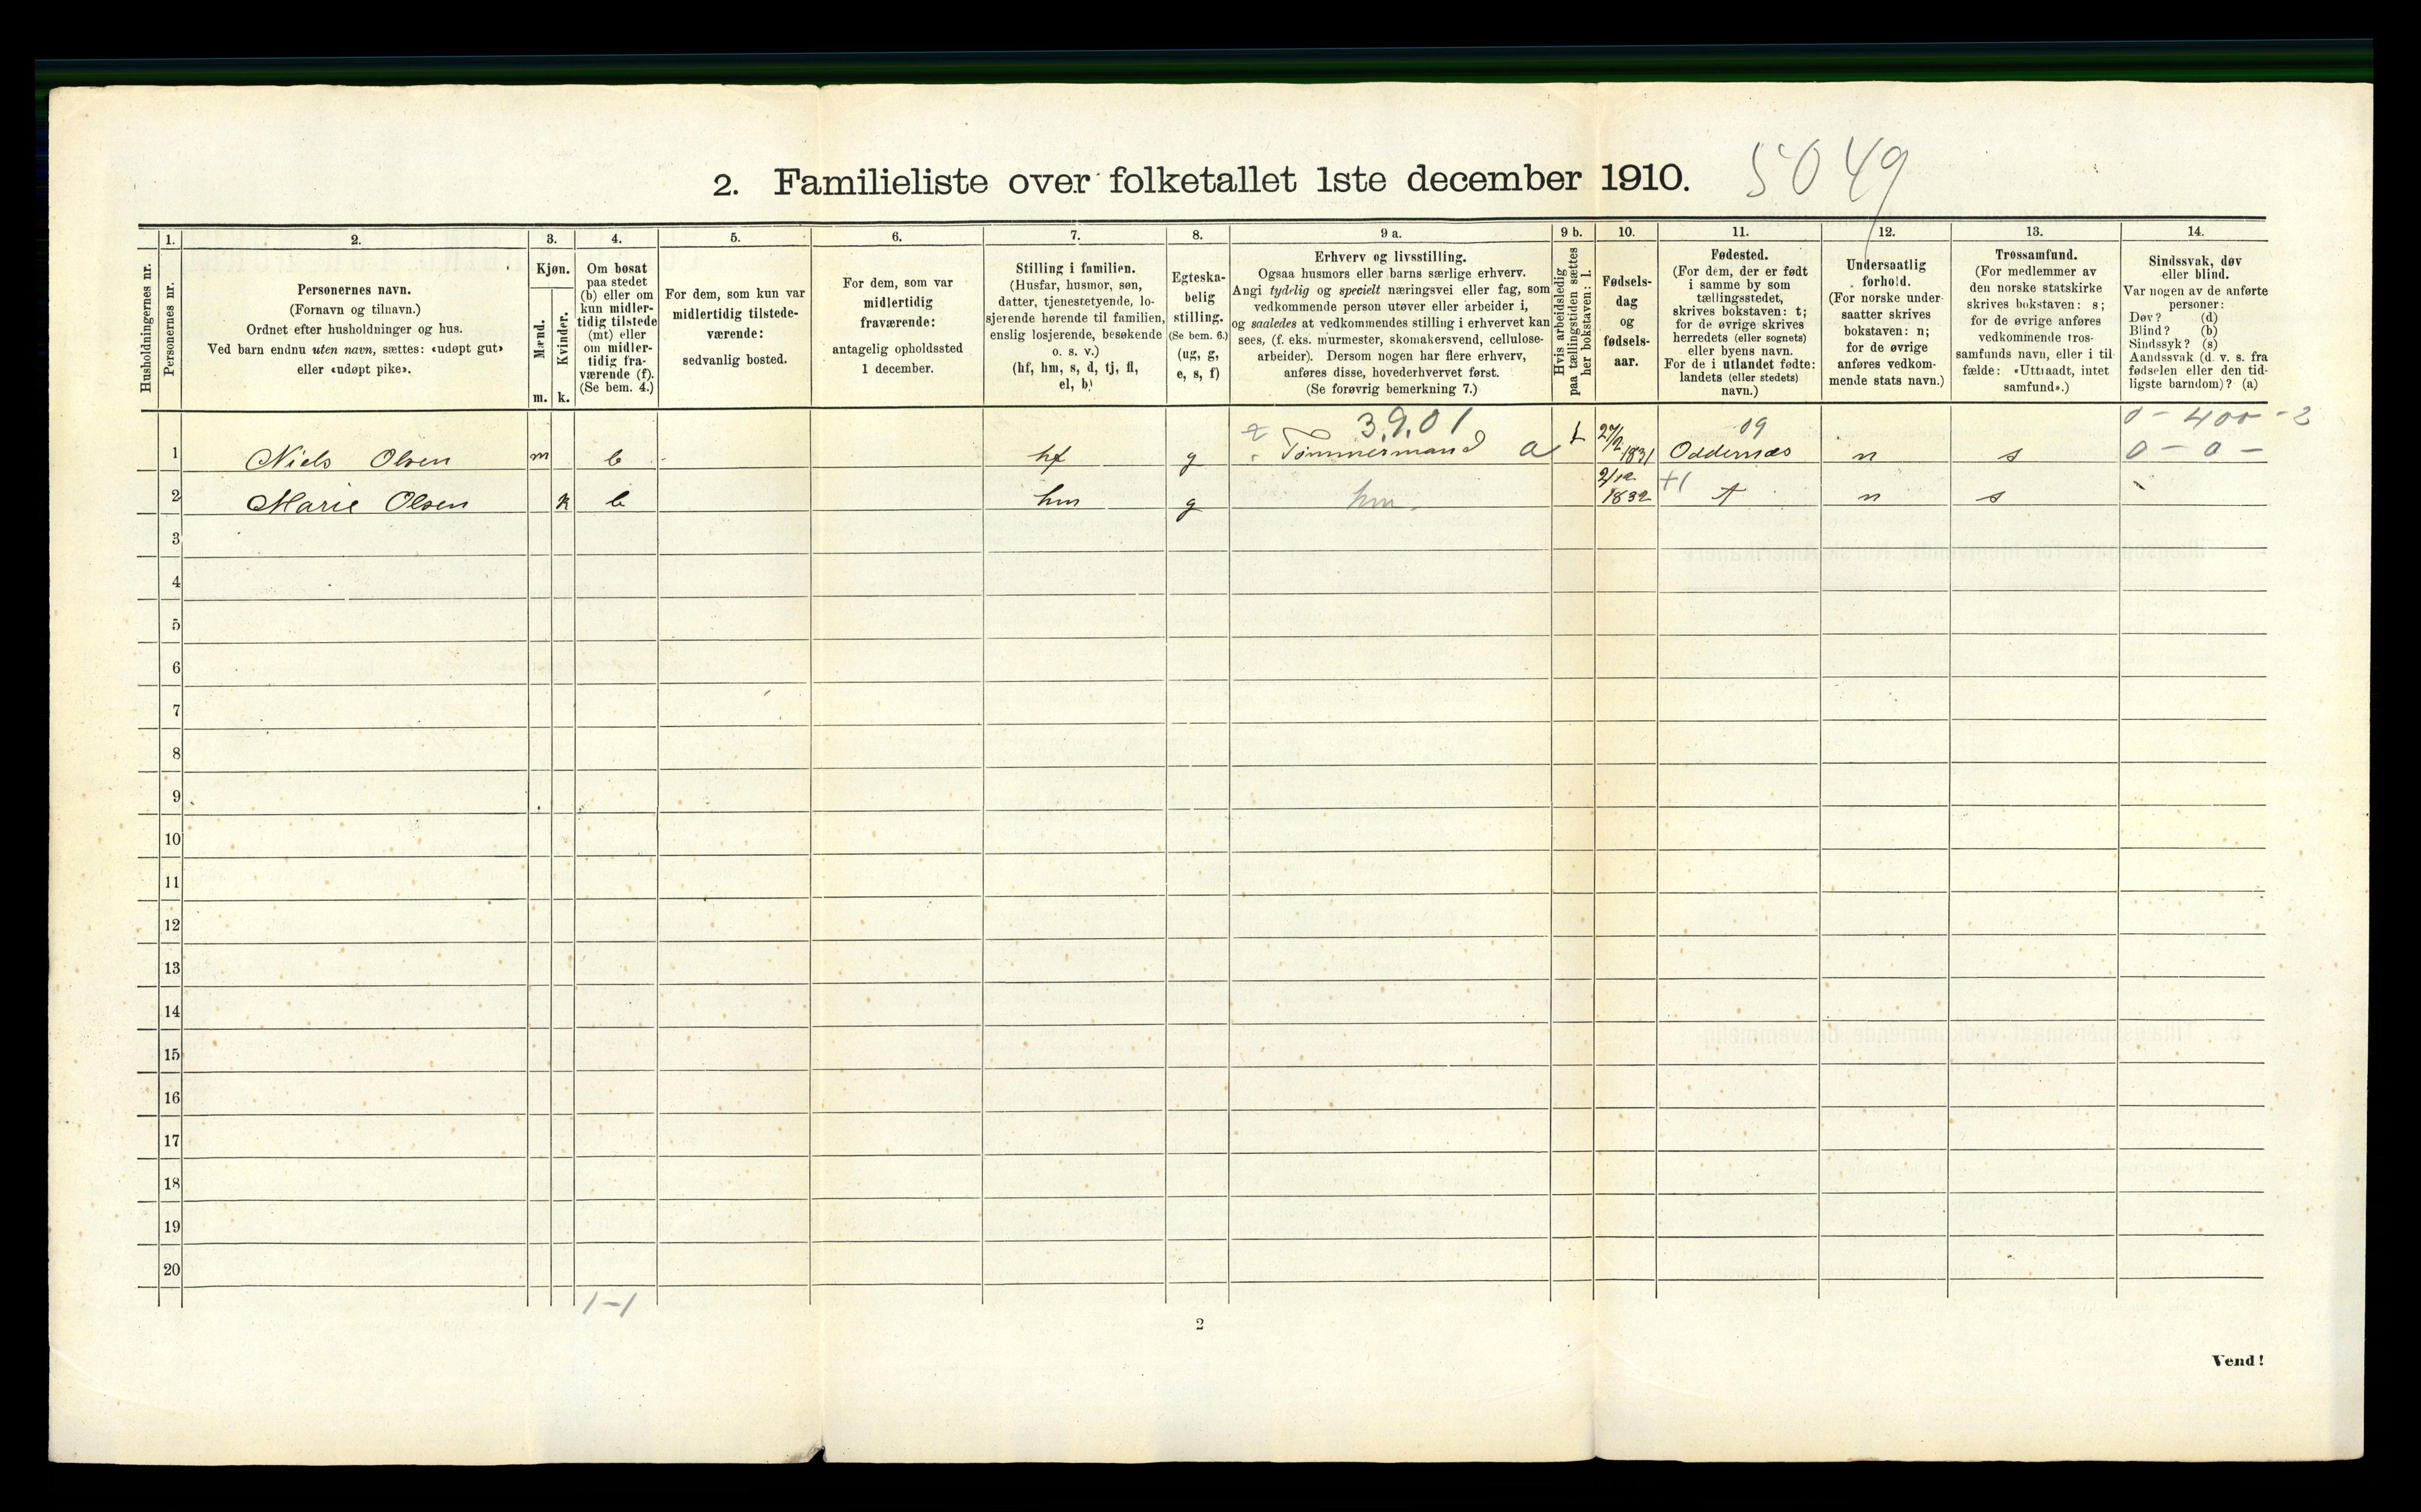 2. Familieliste over folketallet 1ste december 1910.
5049
Husholdningernes nr.
1.
Personernes nr.
2.
Personernes navn.
(Fornavn og tilnavn.)
Ordnet efter husholdninger og hus.
Ved barn endnu uten navn, sættes: «udøpt gut»
eller «udøpt pike».
3.
Kjøn.
Mænd.
m.
Kvinder.
k.
4.
Om bosat
paa stedet
(b) eller om
kun midler-
tidig tilstede
(mt) eller
om midler-
tidig fra-
værende (f).
(Se bem. 4.)
5.
For dem, som kun var
midlertidig tilstede-
værende:
sedvanlig bosted.
6.
For dem, som var
midlertidig
fraværende:
antagelig opholdssted
1 december.
7.
Stilling i familien.
(Husfar, husmor, søn,
datter, tjenestetyende, lo-
sjerende hørende til familien,
enslig losjerende, besøkende
o. s. v.)
(hf, hm, s, d, tj, fl,
el, b)
8.
Egteska-
belig
stilling.
(Se bem. 6.)
(ug, g,
e, s, f)
9 a.
Erhverv og livsstilling.
Ogsaa husmors eller barns særlige erhverv.
Angi tydelig og specielt næringsvei eller fag, som
vedkommende person utøver eller arbeider i,
og saaledes at vedkommendes stilling i erhvervet kan
sees, (f. eks. murmester, skomakersvend, cellulose-
arbeider). Dersom nogen har flere erhverv,
anføres disse, hovederhvervet først.
(Se forøvrig bemerkning 7.)
9 b.
Hvis arbeidsledig
paa tællingstiden sættes
her bokstaven: l.
10.
Fødsels-
dag
og
fødsels-
aar.
11.
Fødested.
(For dem, der er født
i samme by som
tællingsstedet,
skrives bokstaven: t;
for de øvrige skrives
herredets (eller sognets)
eller byens navn.
For de i utlandet fødte:
landets (eller stedets)
navn.)
12.
Undersaatlig
forhold.
(For norske under-
saatter skrives
bokstaven: n;
for de øvrige
anføres vedkom-
mende stats navn.)
13.
Trossamfund.
(For medlemmer av
den norske statskirke
skrives bokstaven: s;
for de øvrige anføres
vedkommende tros-
samfunds navn, eller i til-
fælde: «Uttraadt, intet
samfund».)
14.
Sindssvak, døv
eller blind.
Var nogen av de anførte
personer:
Døv? (d)
Blind? (b)
Sindssyk? (s)
Aandssvak (d. v. s. fra
fødselen eller den tid-
ligste barndom)? (a)
3.9.01 09 0 - 400 - 2
1 Niels Olsen m b hf g Tømmermand a l 27/2 1831 Oddernæs n s 0 - 0 -
2 Marie Olsen k b hm g hm 2/12 1832 +1 t n s
3
4
5
6
7
8
9
10
11
12
13
14
15
16
17
18
19
20
1-1
2
Vend!